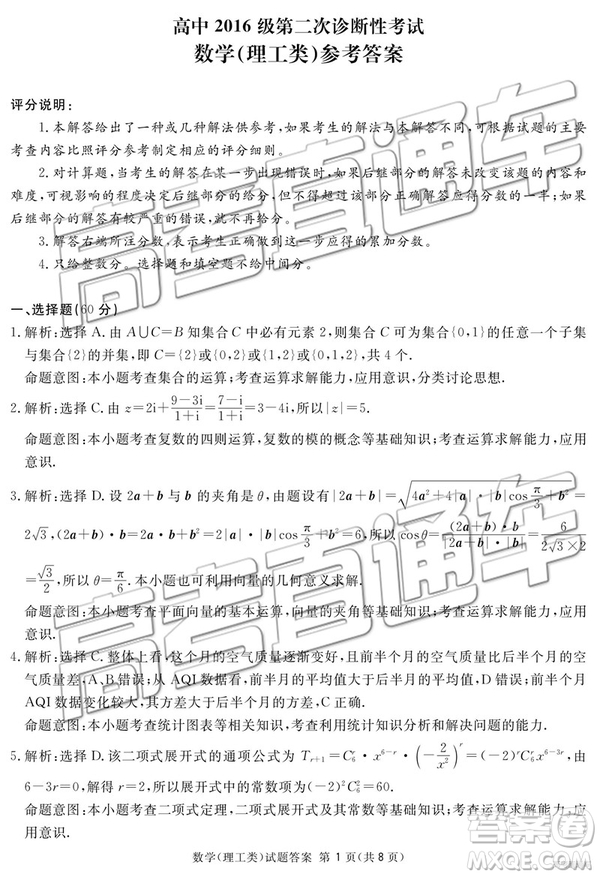 高中 2016 级第二次诊断性考试
数学(理工类)参考答案
评分说明:
1. 本解答给出了一种或几种解法供参考,如果考生的解法与本解答不同,可根据试题的主要
考查内容比照评分参考制定相应的评分细则。
2. 对计算题,当考生的解答在某一步出现错误时,如果后继部分的解答未改变该题的内容和
难度,可视影响的程度决定后继部分的给分,但不得超过该部分正确解答应得分数的一半;如果
后继部分的解答有较严重的错误,就不再给分。
3. 解答右端所注分数,表示考生正确做到这一步应得的累加分数。
4. 只给整数分。选择题和填空题不给中间分。
一、选择题(60 分)
1. 解析:选择 A. 由 A∪C=B 知集合 C 中必有元素 2,则集合 C 可为集合{0,1}的任意一个子集
与集合{2}的并集,即 C={2}或{0,2}或{1,2}或{0,1,2},共 4 个.
命题意图:本小题考查集合的运算;考查运算求解能力,应用意识,分类讨论思想.
2. 解析:选择 C. 由 z=2i+\frac{9-3i}{1+i}=\frac{7-i}{1+i}=3-4i,所以|z|=5.
命题意图:本小题考查复数的四则运算,复数的模的概念等基础知识;考查运算求解能力,应用
意识.
3. 解析:选择 D. 设 2a+b 与 b 的夹角是 θ,由题设有|2a+b|=\sqrt{4a²+4|a|·|b|cos\frac{π}{3}+b²}=
2√3,(2a+b)·b=2a·b+b²=2|a|·|b|cos\frac{π}{3}+|b|²=6,所以 cosθ=\frac{(2a+b)·b}{|2a+b|·|b|}=\frac{6}{2√3×2}
=\frac{√3}{2},所以 θ=\frac{π}{6}. 本题也可利用向量的几何意义求解.
命题意图:本小题考查平面向量的基本运算,向量的夹角等基础知识;考查运算求解能力,应用
意识.
4. 解析:选择 C. 整体上看,这个月的空气质量逐渐变好,且前半个月的空气质量比后半个月的空
气质量差,A、B 错误;从 AQI 数据看,前半月的平均值大于后半月的平均值,D 错误;前半个月
AQI 数据变化较大,其方差大于后半个月的方差,C 正确.
命题意图:本小题考查统计图表等相关知识,考查利用统计知识分析问题和解决问题的能力.
5. 解析:选择 D. 该二项式展开式的通项公式为 T_{r+1}=C_6^r·x^{6-r}·(-\frac{2}{x²})^r=(-2)^r C_6^r x^{6-3r},由
6-3r=0,解得 r=2,所以展开式中的常数项为(-2)²C_6^2=60.
命题意图:本小题考查二项式定理,二项式展开式等基础知识;考查运算求解能力,应用意识.
数学(理工类)试题答案 第 1 页(共 8 页)
高考直通车
高考直通车